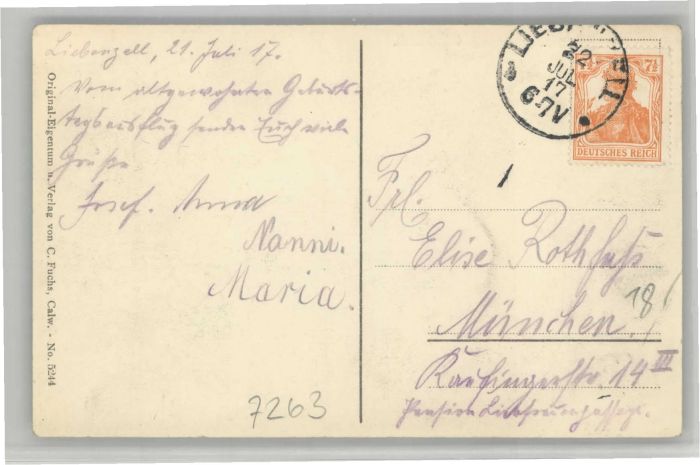 Liebenzell, 21. Juli 17.
Vom altgewohnten Geburts-
tagsausflug senden Euch viele
Grüße
Josef. Anna
Nanni.
Maria.
7263
Original-Eigentum u. Verlag von C. Fuchs, Calw. - No. 5244
LIEBENZELL
22
JUL
17
6-7V
7½
DEUTSCHES REICH
Frl.
Elise Rothfuß
18
München.
Kaufingerstr. 14 III
Pension